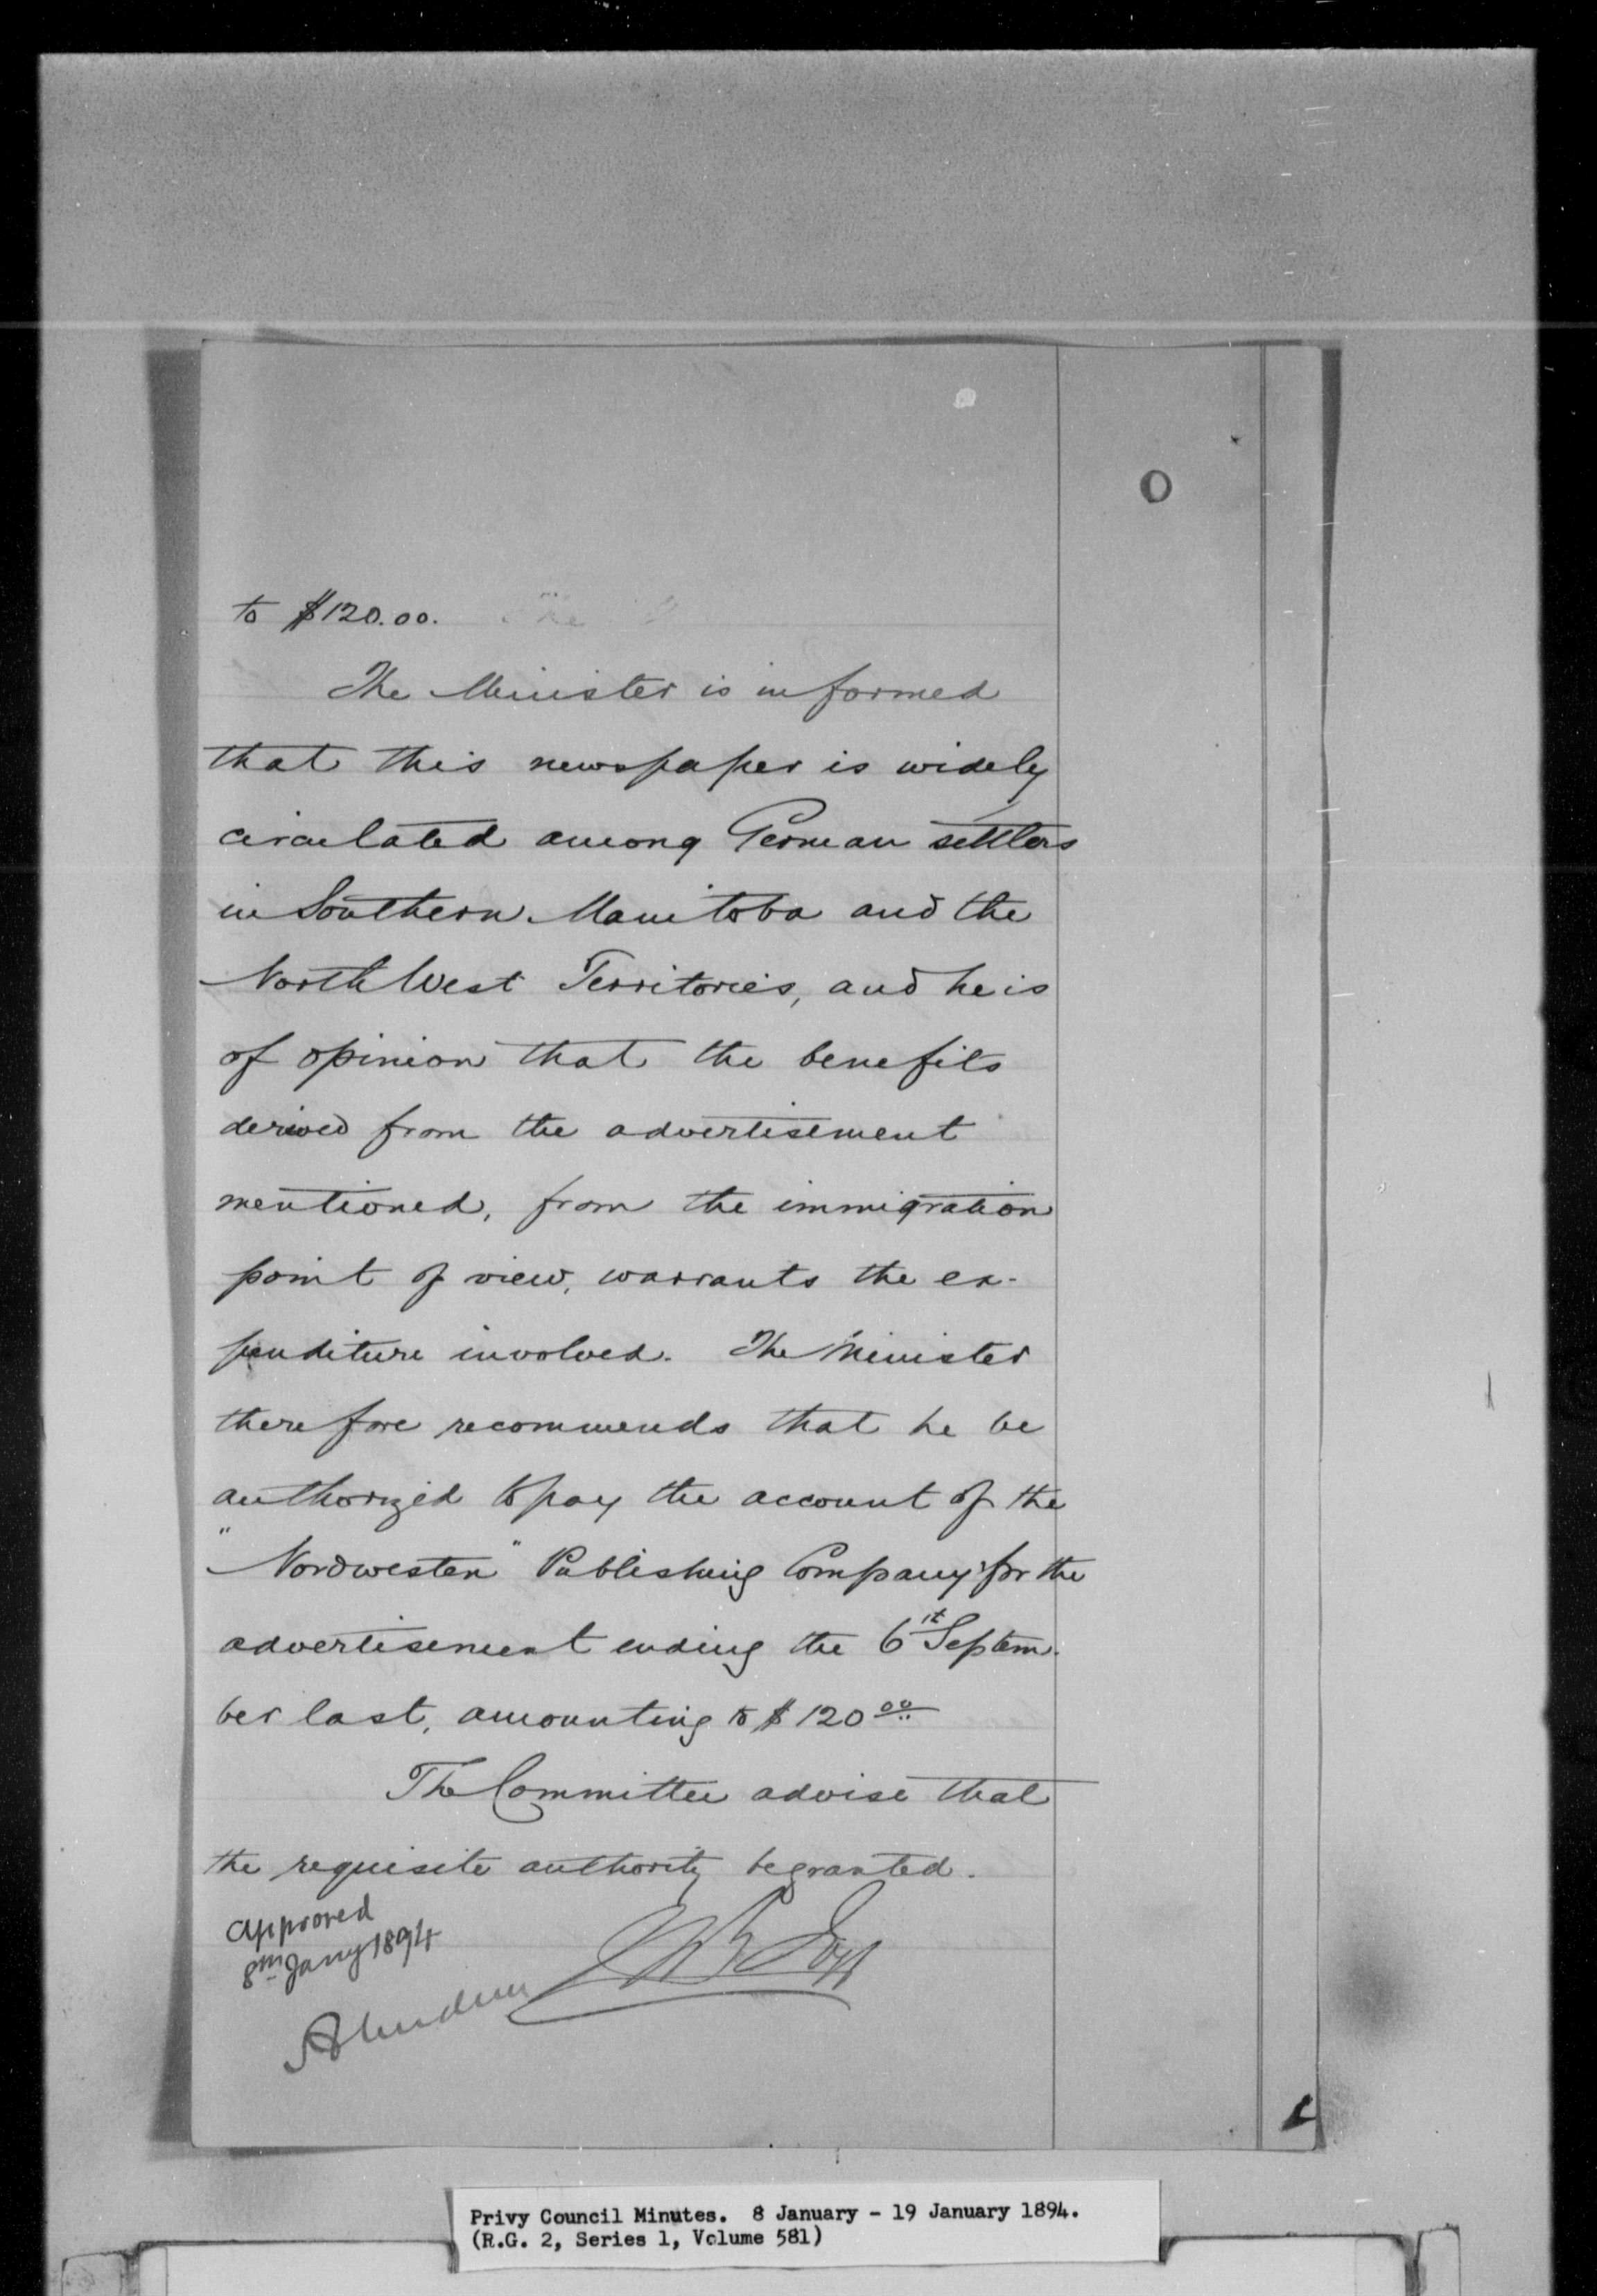 O
to $120.00.
The Minister is informed
that this newspaper is widely
circulated among German settlers
in Southern Manitoba and the
North West Territories, and he is
of opinion that the benefits
derived from the advertisement
mentioned, from the immigration
point of view, warrants the ex-
penditure involved. The Minister
therefore recommends that he be
authorized to pay the account of the
"Nordwesten" Publishing Company for the
advertisement ending the 6th Septem-
ber last, amounting to $120 00
The Committee advise that
the requisite authority be granted.
approved
8th Jany 1894
Aberdeen
Privy Council Minutes. 8 January - 19 January 1894.
(R.G. 2, Series 1, Volume 581)